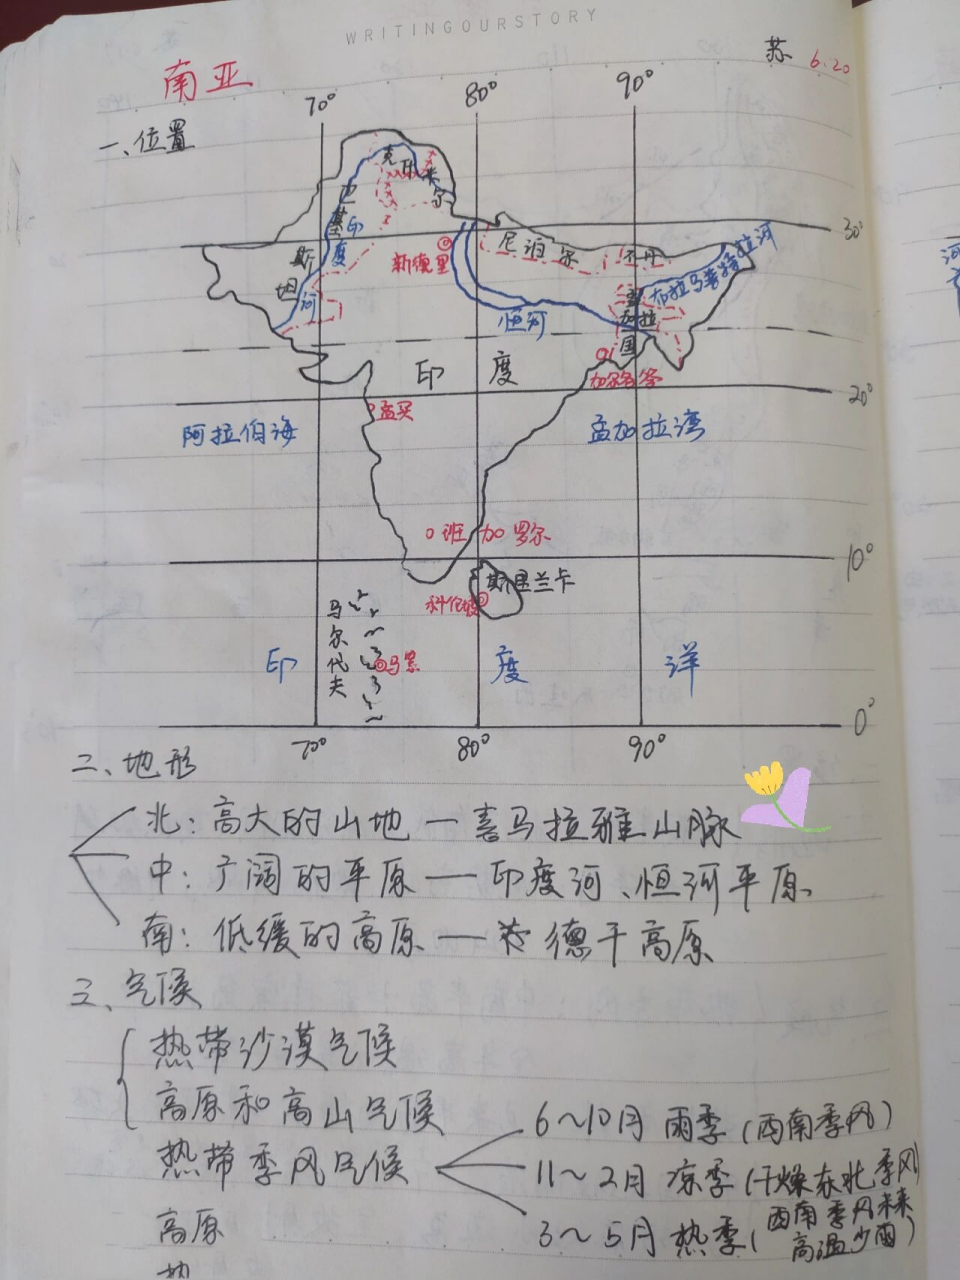 WRITINGOURSTORY
苏 6.20
南亚
70° 80° 90°
一、位置
克什米尔
30°
巴基斯坦
印度河
新德里
尼泊尔
不丹
布拉马普特拉河
恒河
孟加拉国
印度
加尔各答
20°
孟买
阿拉伯海
孟加拉湾
班加罗尔
10°
斯里兰卡
科伦坡
马尔代夫
马累
印度洋
0°
70° 80° 90°
二、地形
北:高大的山地—喜马拉雅山脉
中:广阔的平原——印度河、恒河平原
南:低缓的高原——德干高原
三、气候
热带沙漠气候
高原和高山气候
热带季风气候
6~10月 雨季(西南季风)
11~2月 凉季(干燥东北季风)
3~5月 热季(西南季风未来
高温少雨)
高原